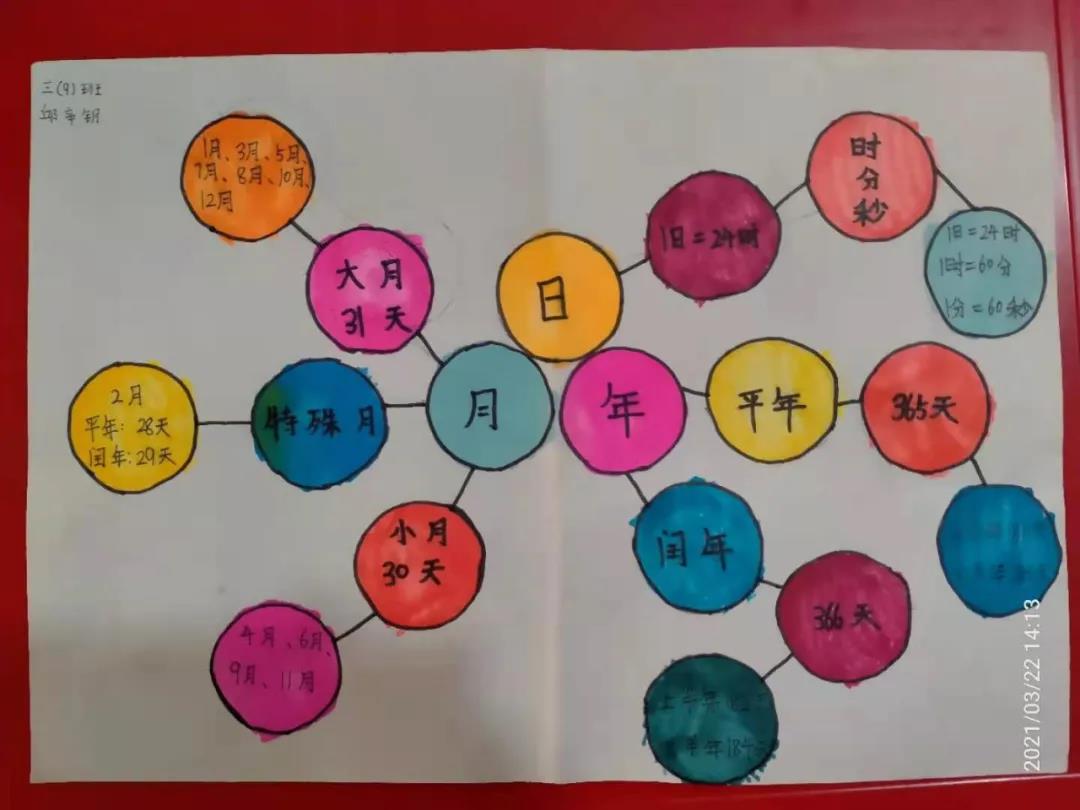 三(9)班
1月、3月、5月、
7月、8月、10月、
12月
大月
31天
特殊月
2月
平年：28天
闰年：29天
小月
30天
4月、6月、
9月、11月
月
日
1日=24时
时
分
秒
1日=24时
1时=60分
1分=60秒
年
平年
365天
闰年
366天
上半年
半年184
2021/03/22 14:13